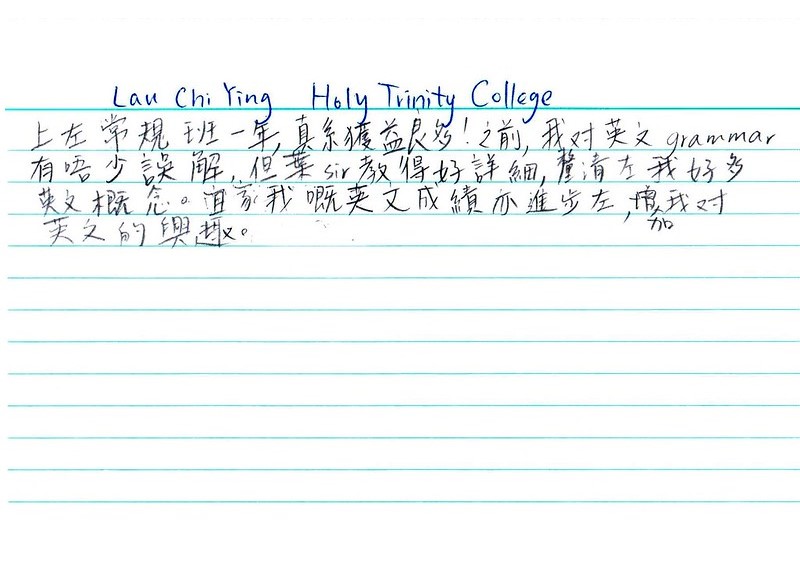 Lau Chi Ying Holy Trinity College
上左常規班一年,真系獲益良多!之前,我对英文grammar
有唔少誤解,但葉sir教得好詳細,釐清左我好多
英文概念。宜家我嘅英文成績亦進步左,增加我对
英文的興趣。